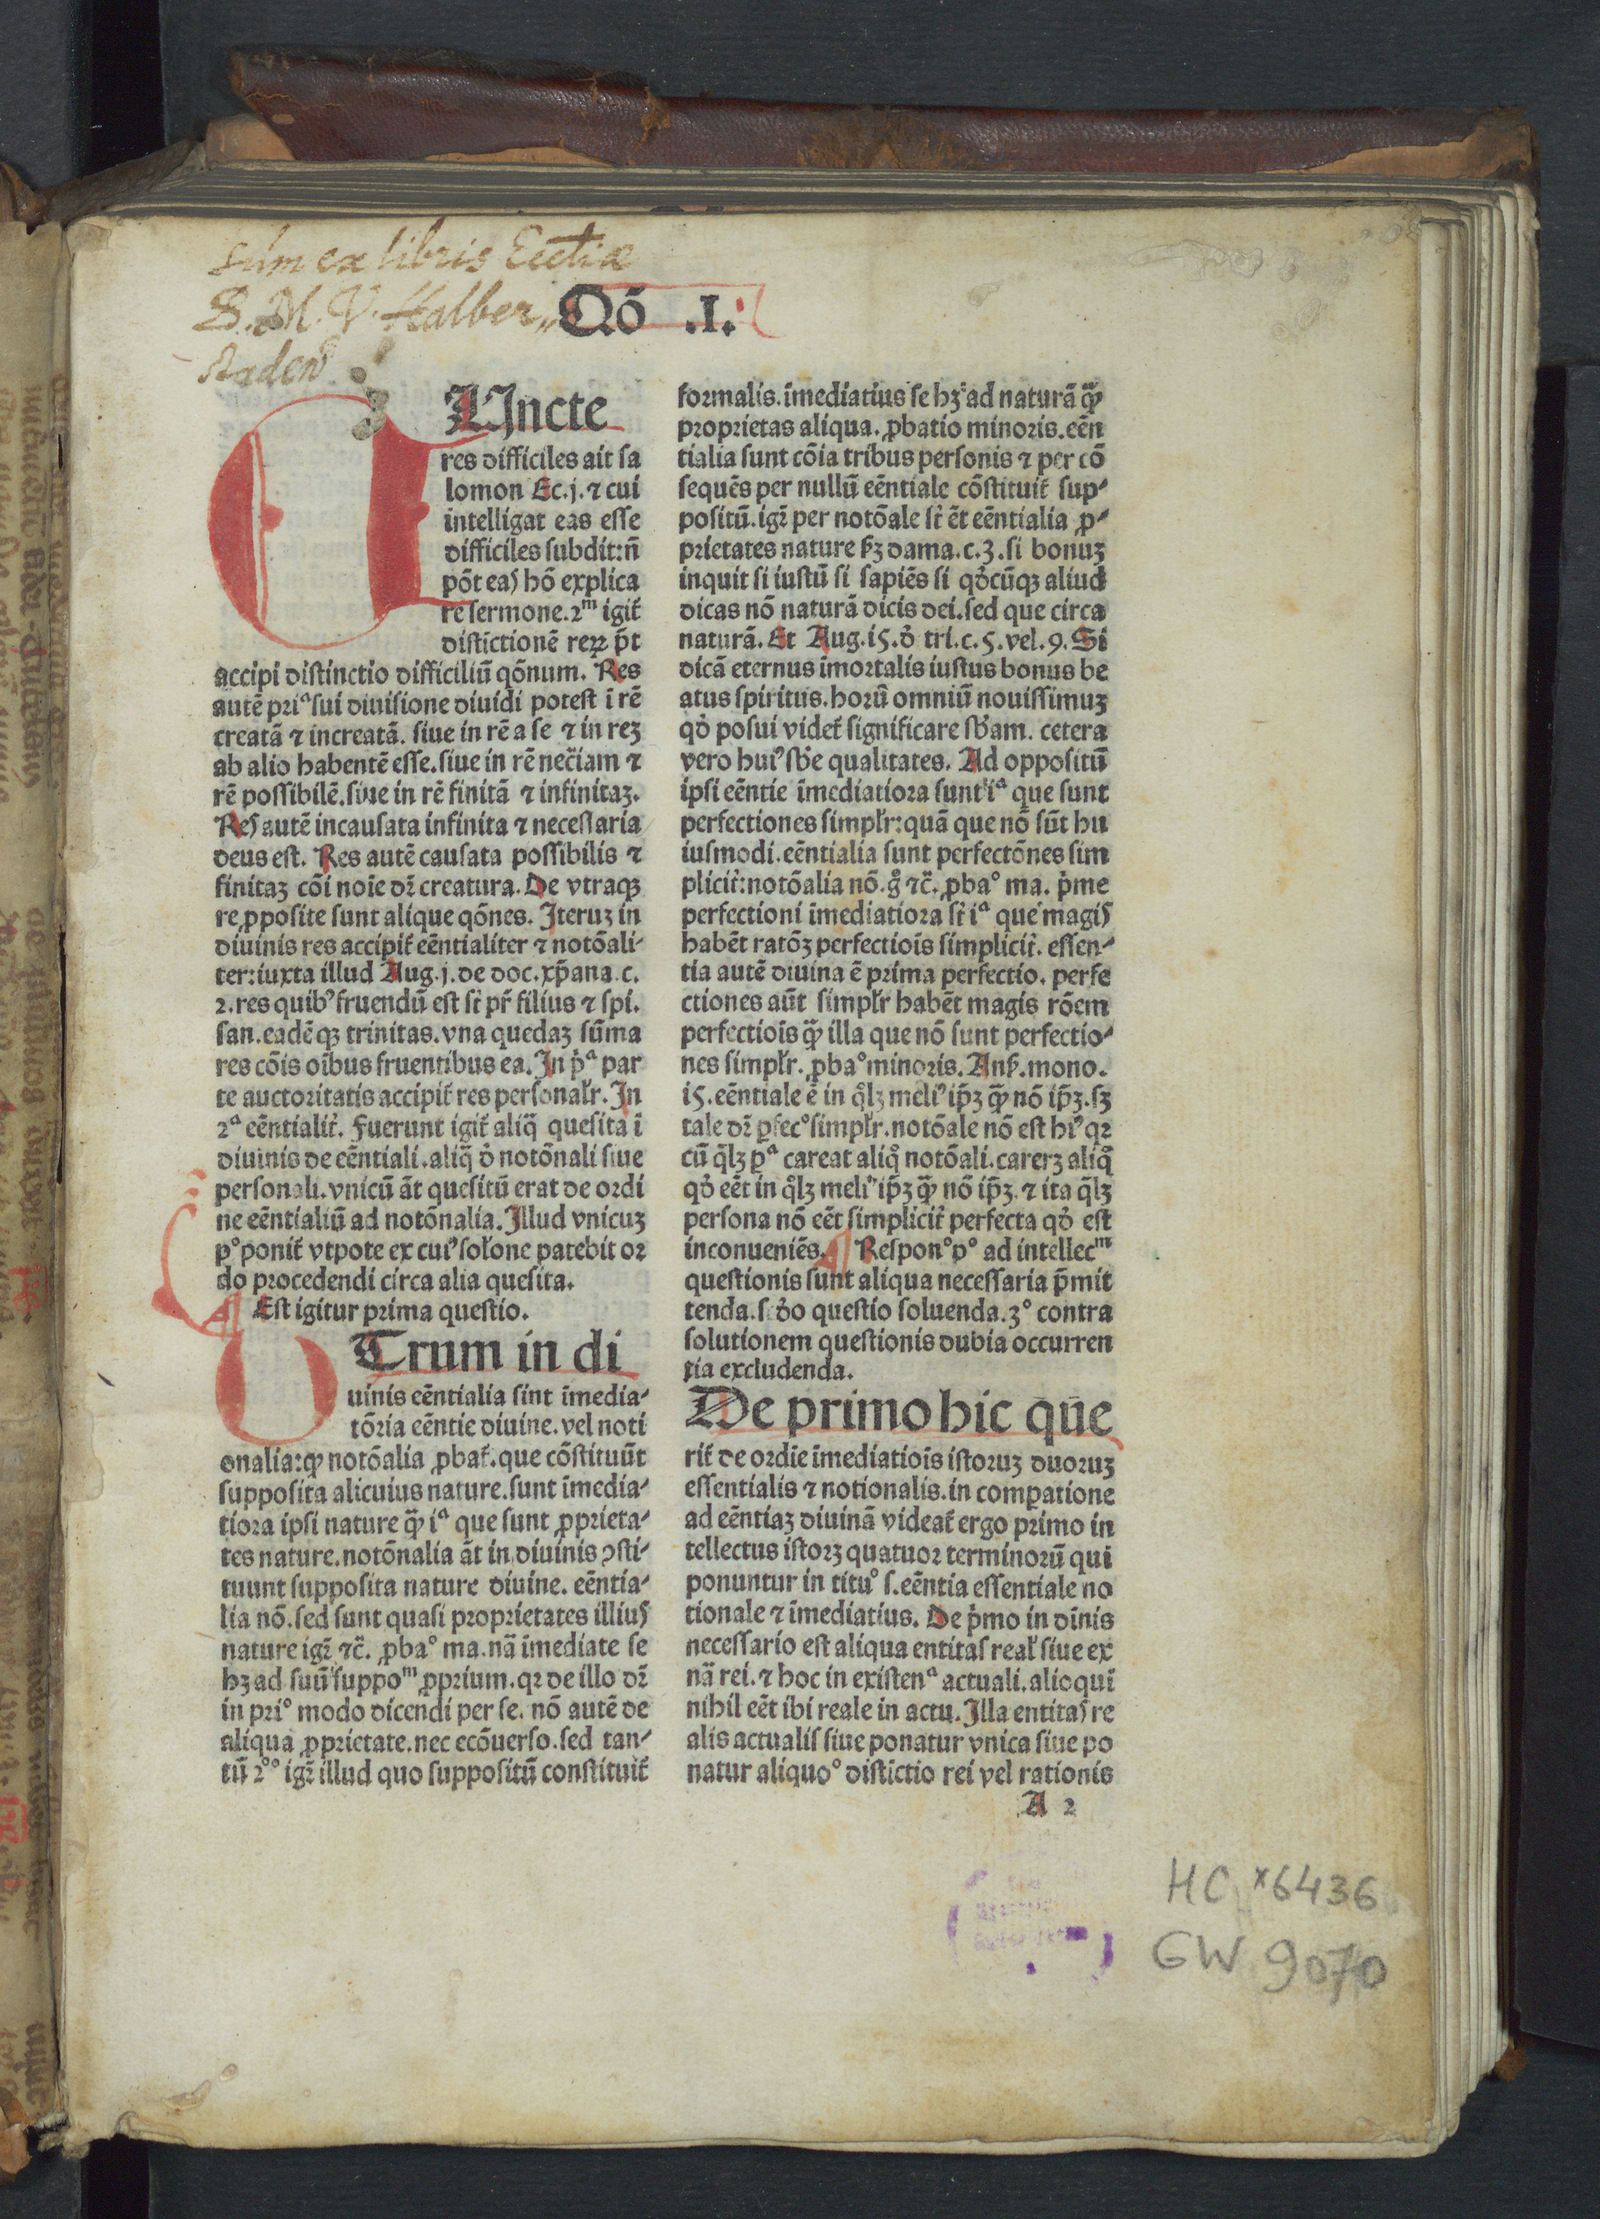 Sum ex libris Eccłiæ
S. M. V. Halber„
stadens̄
Qõ .I.
Uncte
res difficiles ait sa
lomon Ec.j. ⁊ cui
intelligat eas esse
difficiles subdit: ñ
põt eas hõ explica
re sermone. 2ᵐ igit᷑
distictionē reꝝ p̄t
accipi distinctio difficiliū qõnum. Res
autē priᵃ sui diuisione diuidi potest ī rē
creatā ⁊ increatā. siue in rē a se ⁊ in reꝫ
ab alio habentē esse. siue in rē nec̄iam ⁊
rē possibilē. siue in rē finitā ⁊ infinitaꝫ.
Res autē incausata infinita ⁊ necessaria
deus est. Res autē causata possibilis ⁊
finitaꝫ cõi noīe dr̄ creatura. De vtraqꝫ
re ꝓposite sunt alique qõnes. Jteruꝫ in
diuinis res accipit᷑ eēntialiter ⁊ notõali-
ter: iuxta illud Aug. j. de doc. xp̄ana. c.
2. res quibꝰ fruendū est st᷑ pr̄ filius ⁊ spi.
san. eadēqꝫ trinitas. vna quedaꝫ sūma
res cõis oībus fruentibus ea. Jn p̓ᵃ par
te auctoritatis accipit᷑ res personalr̄. Jn
2ᵃ eēntialit᷑. Fuerunt igit᷑ aliq̄ quesita ī
diuinis de eēntiali. aliq̄ d̓ notõnali siue
personali. vnicū āt quesitū erat de ordi
ne eēntialiū ad notõnalia. Jllud vnicuꝫ
p°ponit᷑ vtpote ex cuiꝰ solone patebit or
do procedendi circa alia quesita.
¶ Est igitur prima questio.
UTrum in di
uinis eēntialia sint īmedia-
tõria eēntie diuine. vel noti
onalia: qꝙ notõalia ꝓbat᷑. que cõstituūt
supposita alicuius nature. sunt īmedia-
tiora ipsi nature qꝫ̄ iᵃ que sunt ꝓprieta-
tes nature. notõnalia āt in diuinis ꝯsti-
tuunt supposita nature diuine. eēntia-
lia nõ. sed sunt quasi proprietates illius
nature igr̄ ⁊c̄. ꝓba° ma. nā īmediate se
hꝫ ad suū suppoᵐ ꝓprium. qꝛ de illo dr̄
in pri° modo dicendi per se. nõ autē de
aliqua ꝓprietate. nec ecõuerso. sed tan-
tū 2°° igr̄ illud quo suppositū constituit᷑
formalis. īmediatius se hꝫ ad naturā qꝫ̄
proprietas aliqua. ꝓbatio minoris. eēn
tialia sunt cõia tribus personis ⁊ per cõ
sequēs per nullū eēntiale cõstituit᷑ sup-
positū. igr̄ per notõale st᷑ ēt eēntialia ꝓ-
prietates nature ẜꝫ dama. c. 3. si bonuꝫ
inquit si iustū si sapiēs si qd̓cūqꝫ aliud
dicas nõ naturā dicis dei. sed que circa
naturā. Et Aug. i5. d̓ tri. c. 5. vel. 9. Si
dicā eternus īmortalis iustus bonus be
atus spiritus. horū omniū nouissimuꝫ
qd̓ posui videt᷑ significare sb̓am. cetera
vero huiꝰ sb̓e qualitates. Ad oppositū
ipsi eēntie īmediatiora sunt iᵃ que sunt
perfectiones simplr̄: quā que nõ sūt hu
iusmodi. eēntialia sunt perfectõnes sim
plicit᷑: notõalia nõ. g̊ ⁊c̄. ꝓba° ma. p̓me
perfectioni īmediatiora st᷑ iᵃ que magis
habēt ratõꝫ perfectiois simplicit᷑. essen-
tia autē diuina ē prima perfectio. perfe
ctiones aūt simplr̄ habēt magis rõem
perfectiois qꝫ̄ illa que nõ sunt perfectio-
nes simplr̄. ꝓba° minoris. Anẜ. mono.
i5. eēntiale ē in q̊lꝫ meliꝰ ip̄ꝫ qꝫ̄ nõ ip̄ꝫ. sꝫ
tale dr̄ ꝑfec° simplr̄. notõale nõ est hiꝰ qꝛ
cū q̄lꝫ ꝑᵃ careat aliq̊ notõali. carerꝫ aliq̊
qd̓ eēt in q̊lꝫ meliꝰ ip̄ꝫ qꝫ̄ nõ ip̄ꝫ. ⁊ ita q̄lꝫ
persona nõ eēt simplicit᷑ perfecta qd̓ est
inconueniēs. ¶ Respon° p° ad intellecᵐ
questionis sunt aliqua necessaria p̄mit
tenda. s. 2do questio soluenda. 3° contra
solutionem questionis dubia occurren
tia excludenda.
De primo hic que
rit᷑ de ordīe īmediatiois istoruꝫ duoruꝫ
essentialis ⁊ notionalis. in compatione
ad eēntiaꝫ diuinā videat᷑ ergo primo in
tellectus istorꝫ quatuor terminorū qui
ponuntur in titu° s. eēntia essentiale no
tionale ⁊ īmediatius. De p̓mo in diīnis
necessario est aliqua entitas realꝭ siue ex
nā rei. ⁊ hoc in existenᵃ actuali. alioqui
nihil eēt ibi reale in actu. Jlla entitas re
alis actualis siue ponatur vnica siue po
natur aliquo° distictio rei vel rationis
A 2
HC *6436
GW 9070